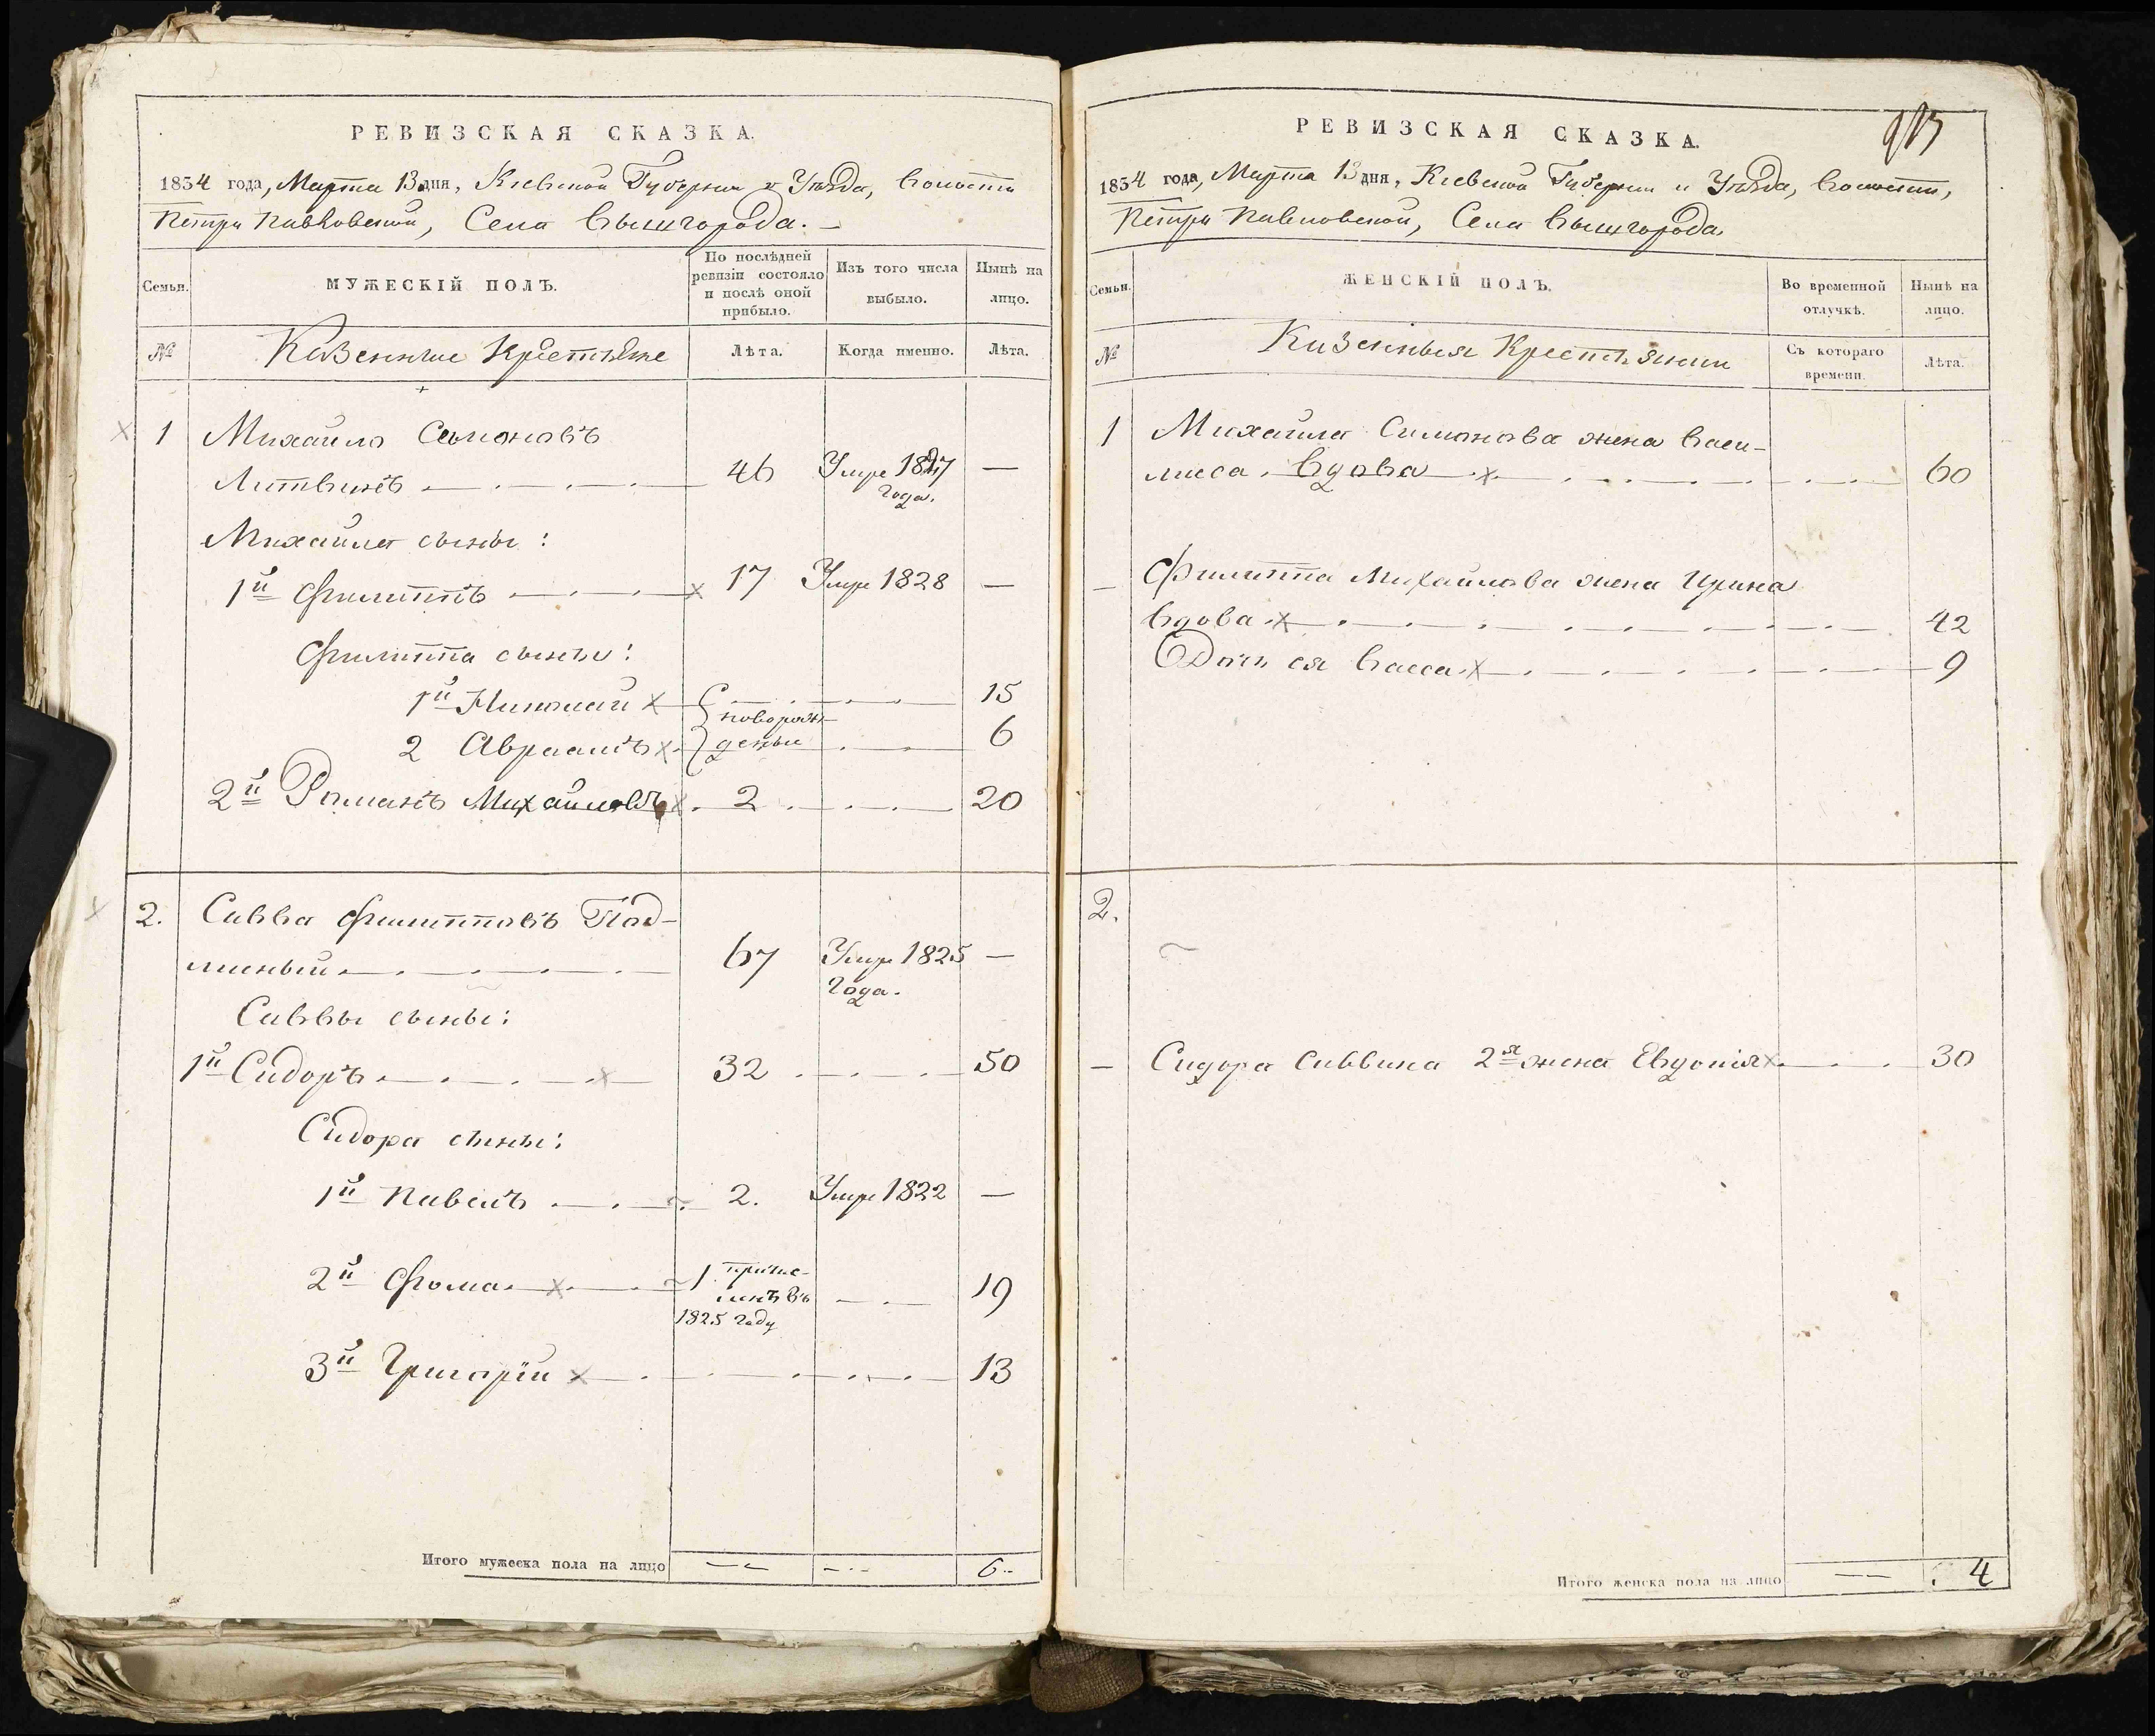 РЕВИЗСКАЯ СКАЗКА.
1834 года, Марта 13 дня, Киевской Губернии и Уѣзда, Волости
Петро Павловской, Села Вышгорода. —
Семьи.
МУЖЕСКІЙ ПОЛЪ.
По послѣдней ревизіи состояло и послѣ оной прибыло.
Изъ того числа выбыло.
Нынѣ на лицо.
№
Казенные Крестьяне
Лѣта.
Когда именно.
Лѣта.
1 Михайло Семоновъ
Литвинъ 46 Умре 1827 года. —
Михайла сыны:
1й Филиппъ 17 Умре 1828 —
Филиппа сыны:
1й Николай 15
новорож-
2 Авраамъ дены 6
2й Романъ Михайловъ 2 20
2. Савва Филипповъ Под-
лисный 67 Умре 1825 года. —
Саввы сыны:
1й Сидоръ 32 50
Сидора сыны:
1й Павелъ 2. Умре 1822 —
2й Фома 1 причис-
ленъ въ 19
1825 году
3й Григорій 13
Итого мужеска пола на лицо 6
РЕВИЗСКАЯ СКАЗКА.
1834 года, Марта 13 дня, Киевской Губернии и Уѣзда, Волости,
Петро Павловской, Села Вышгорода.
Семьи.
ЖЕНСКІЙ ПОЛЪ.
Во временной отлучкѣ.
Нынѣ на лицо.
№
Казенныя Крестьянки
Съ котораго времени.
Лѣта.
1 Михайла Симонова жена Васи-
лиса Вдова 60
— Филиппа Михайлова жена Ирина
Вдова 42
Дочь ея Васса 9
2.
— Сидора Саввина 2я жена Евдокія 30
Итого женска пола на лицо 4